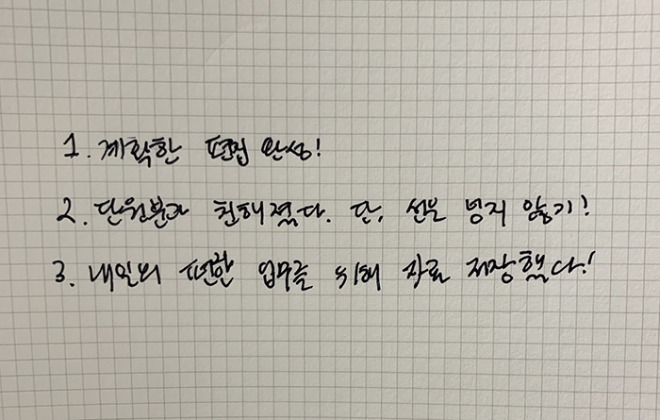 1. 계획한 편집 완성!
2. 단원분과 친해졌다. 단, 선은 넘지 않기!
3. 내일의 편한 업무를 위해 자료 저장했다!